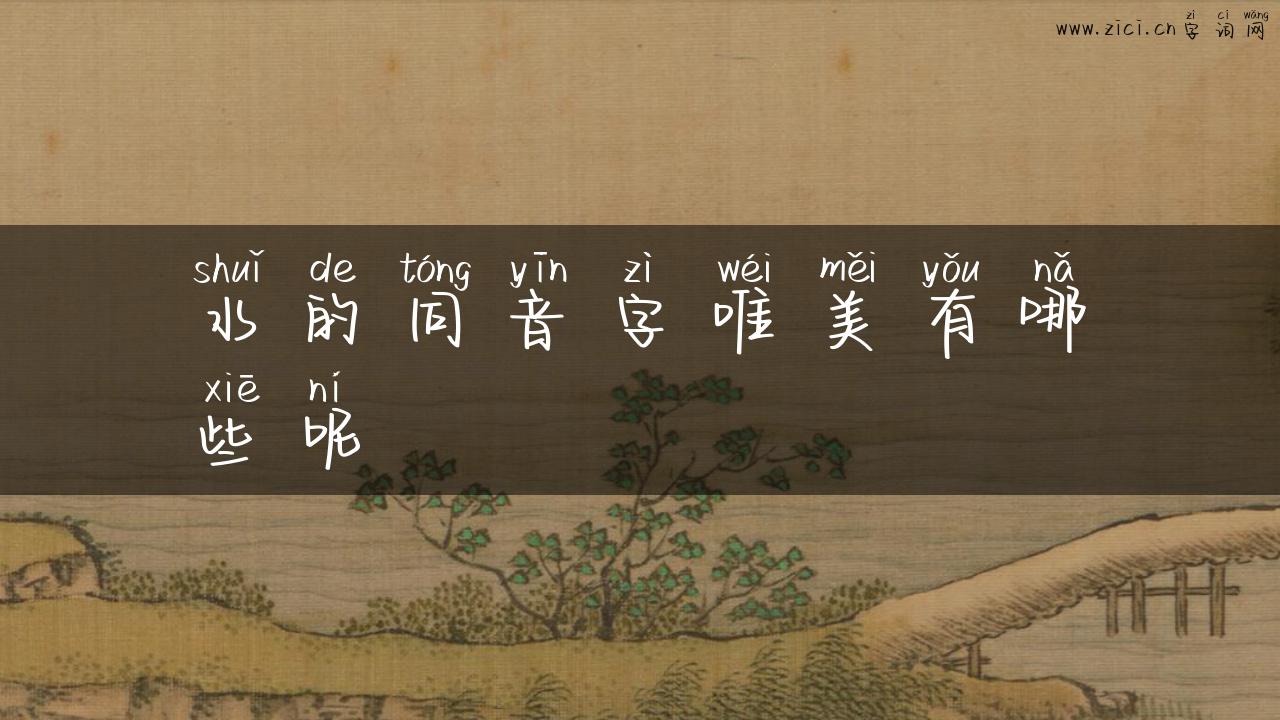 zì cí wǎng
www.zici.cn 字词网
shuǐ de tóng yīn zì wéi měi yǒu nǎ
水的同音字唯美有哪
xiē ní
些呢